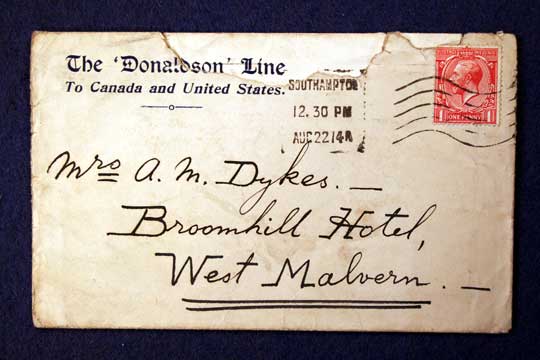 The 'Donaldson' Line
To Canada and United States.
SOUTHAMPTON
12.30 PM
AUG 22 14A
Mrs A. M. Dykes. —
Broomhill Hotel,
West Malvern. —
ONE PENNY